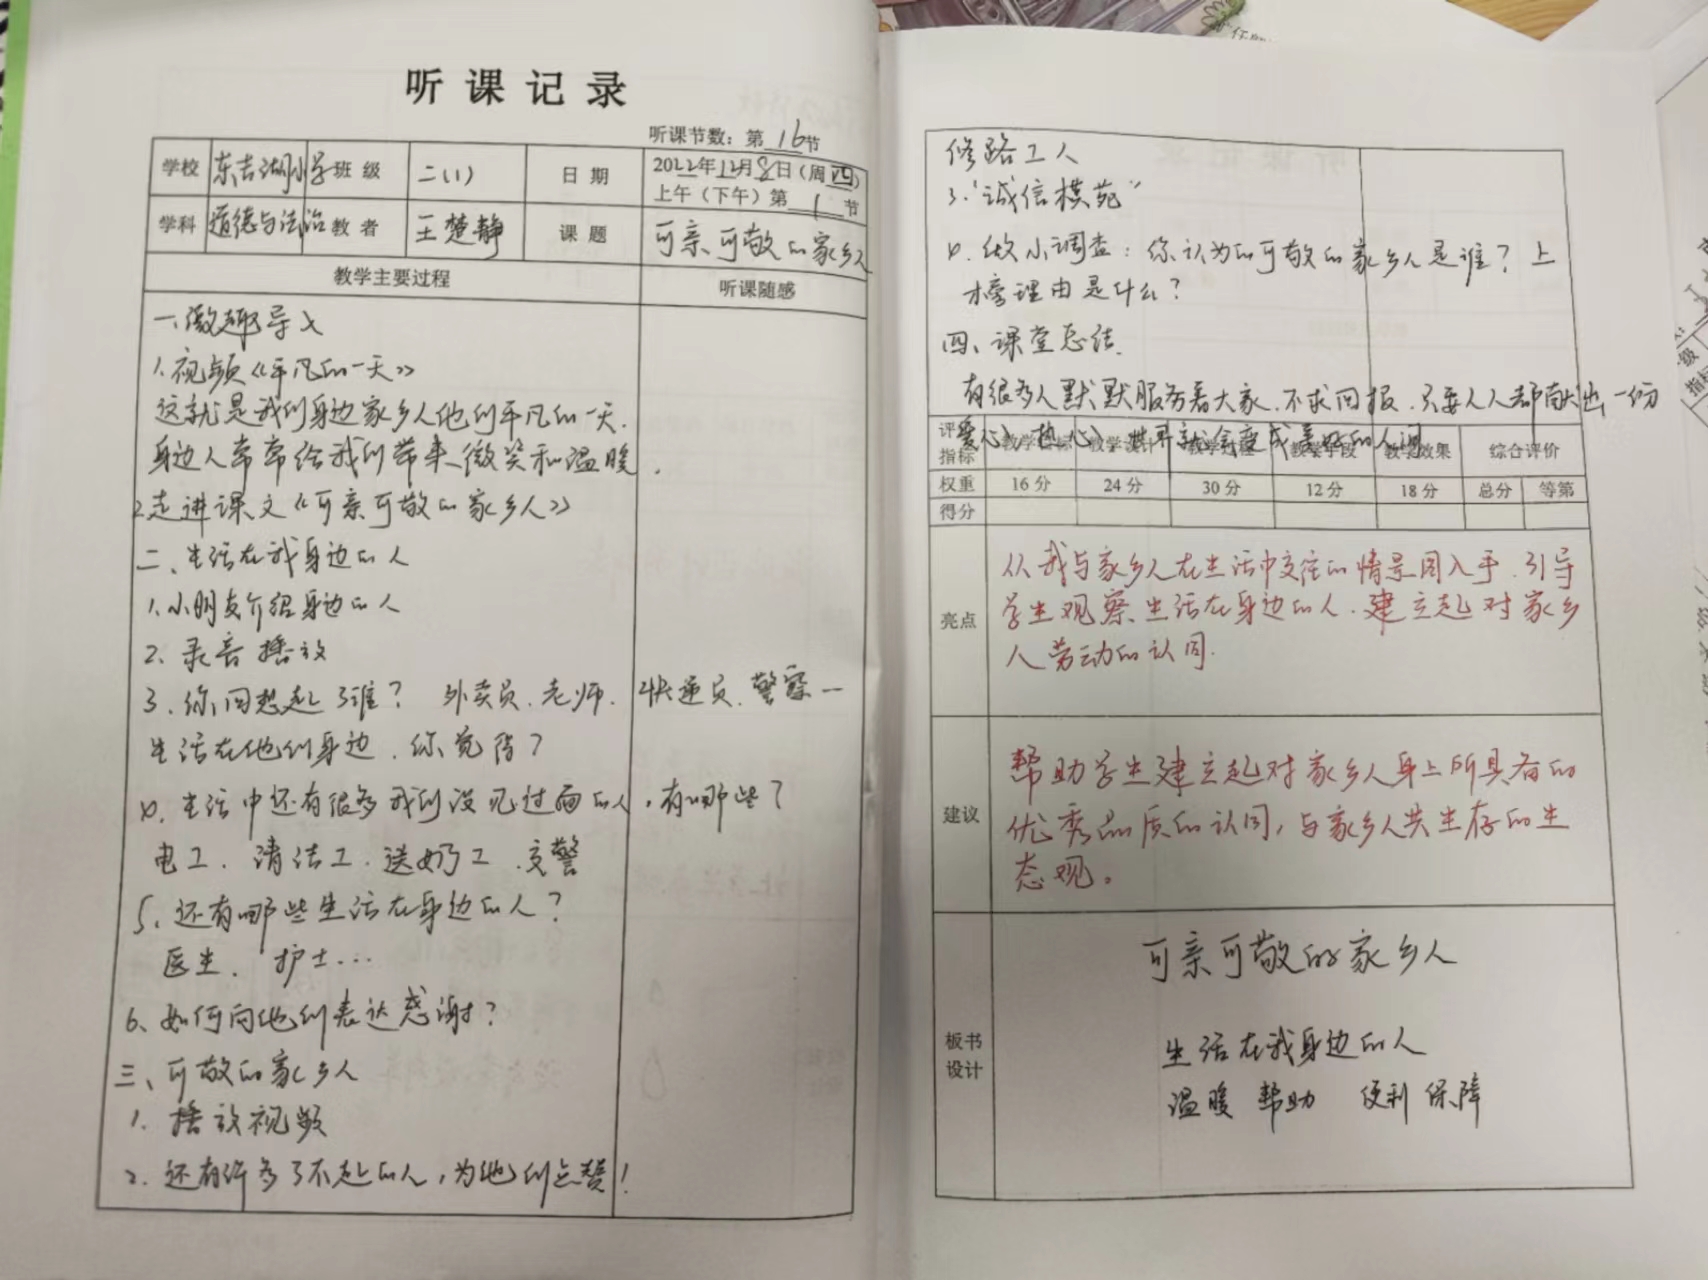 听课记录
听课节数：第 16 节
学校 东吉湖小学 班级 二(1) 日期 2022年12月8日(周四)
上午（下午）第 1 节
学科 道德与法治 教者 王楚静 课题 可亲可敬的家乡人
教学主要过程 听课随感
一、激趣导入
1.视频《平凡的一天》
这就是我们身边家乡人他们平凡的一天.
身边人常常给我们带来微笑和温暖.
2.走进课文《可亲可敬的家乡人》
二、生活在我身边的人
1.小朋友介绍身边的人
2.录音播放
3.你回想起了谁？ 外卖员.老师.快递员.警察…
生活在他们身边.你觉得？
4.生活中还有很多我们没见过面的人，有哪些？
电工.清洁工.送奶工.交警
5.还有哪些生活在身边的人？
医生.护士...
6、如何向他们表达感谢？
三、可敬的家乡人
1.播放视频
2.还有许多了不起的人，为他们点赞！
修路工人
3."诚信模范"
4.做小调查：你认为的可敬的家乡人是谁？上
榜理由是什么？
四、课堂总结.
有很多人默默服务着大家.不求回报.只要人人都献出一份
爱心、热心、世界就会变成美好的人间
评价指标 教学目标 教学设计 教学过程 教学手段 教学效果 综合评价
权重 16分 24分 30分 12分 18分 总分 等第
得分
亮点
从我与家乡人在生活中交往的情景图入手.引导
学生观察生活在身边的人.建立起对家乡
人劳动的认同.
建议
帮助学生建立起对家乡人身上所具备的
优秀品质的认同，与家乡人共生存的生
态观。
板书设计
可亲可敬的家乡人
生活在我身边的人
温暖 帮助 便利 保障